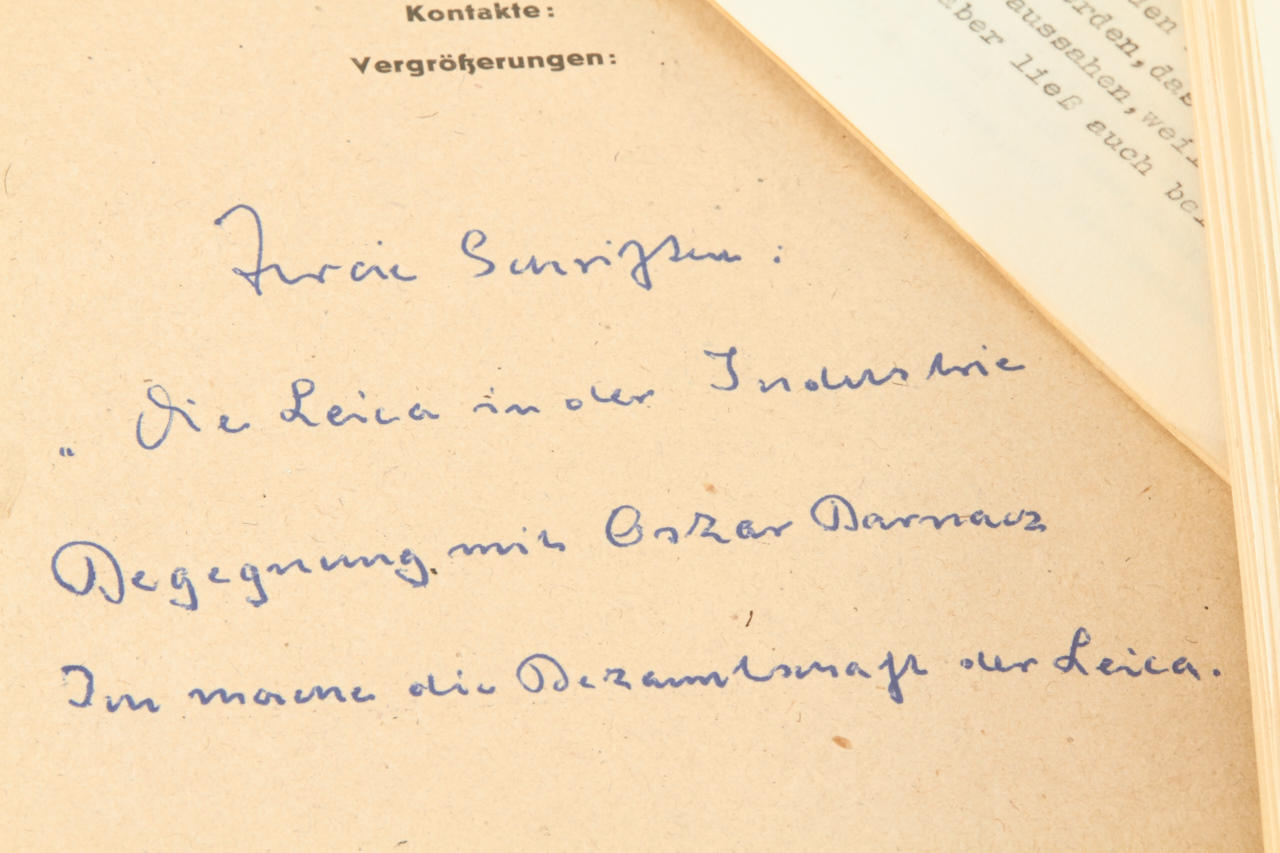 Kontakte:
Vergrößerungen:
Zwei Schriften:
„ Die Leica in der Industrie
Begegnung mit Oskar Barnack
Ich mache die Bekanntschaft der Leica.
den
erden, das
aussahen, weil
aber ließ auch bei